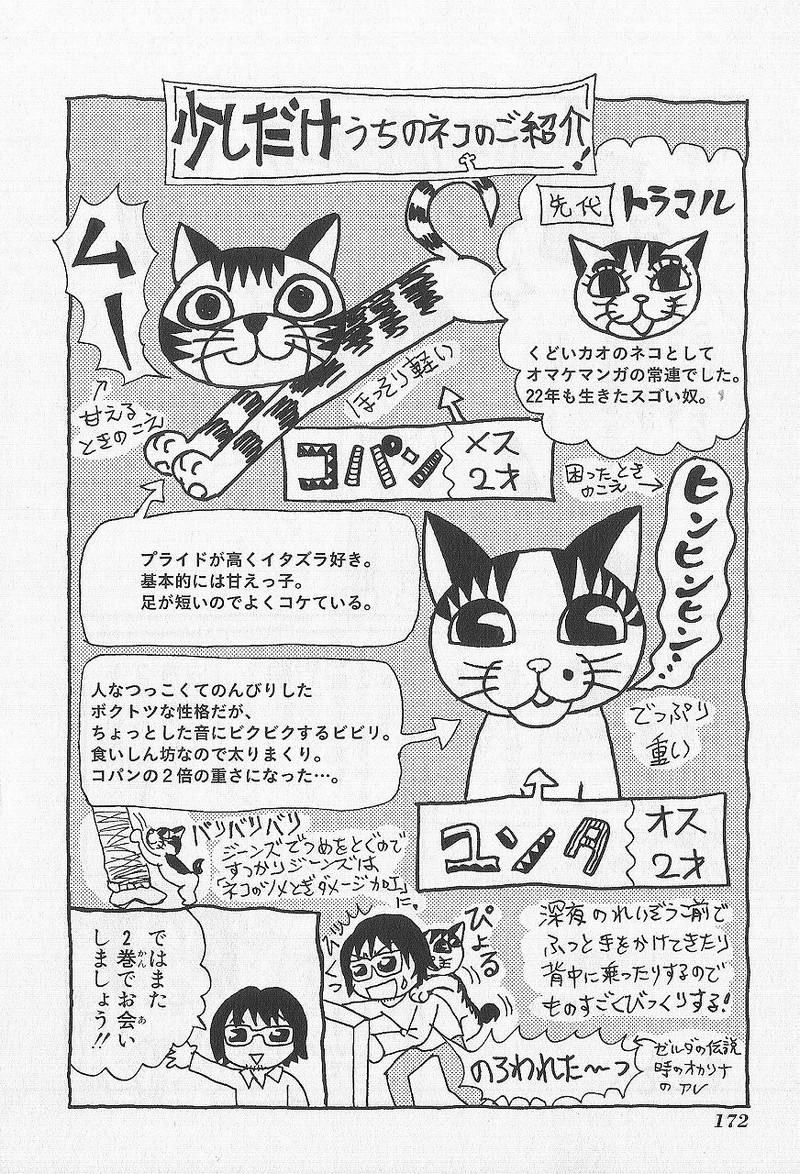 少しだけうちのネコのご紹介!
先代 トラマル
くどいカオのネコとして
オマケマンガの常連でした。
22年も生きたスゴい奴。
ムー
甘える
ときのこえ
ほっそり軽い
コパン
メス
2才
プライドが高くイタズラ好き。
基本的には甘えっ子。
足が短いのでよくコケている。
困ったとき
のこえ
ヒンヒンヒン…
人なつっこくてのんびりした
ボクトツな性格だが、
ちょっとした音にビクビクするビビリ。
食いしん坊なので太りまくり。
コパンの2倍の重さになった…。
でっぷり
重い
ユンタ
オス
2才
バリバリバリ
ジーンズでつめをとぐので
すっかりジーンズは
「ネコのツメとぎダメージ加工」
に。
深夜のれいぞうこ前で
ふっと手をかけてきたり
背中に乗ったりするので
ものすごくびっくりする!
ぴょる
のろわれた〜っ
ゼルダの伝説
時のオカリナ
のアレ
ではまた
2巻でお会い
しましょう!!
172